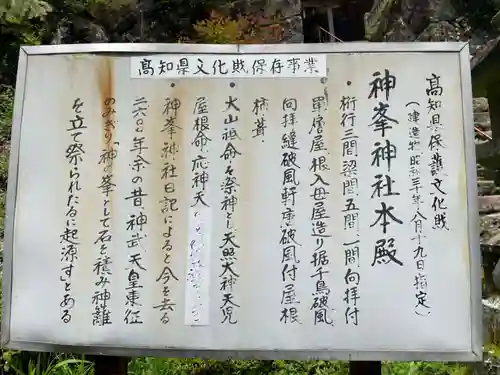 高知県文化財保存事業
高知県保護文化財
（建造物昭和三十年八月十九日指定）
神峯神社本殿
・桁行三間梁間五間一間向拝付
單層屋根入母屋造り据千鳥破風
向拝縋破風軒唐破風付屋根
柿葺
・大山祗命を祭神とし天照大神天児
屋根命、応神天
・神峯神社日記によると今を去る
二六〇〇年余の昔、神武天皇東征
のみぎり「神の峯」として石を積み神籬
を立て祭られたるに起源す」とある